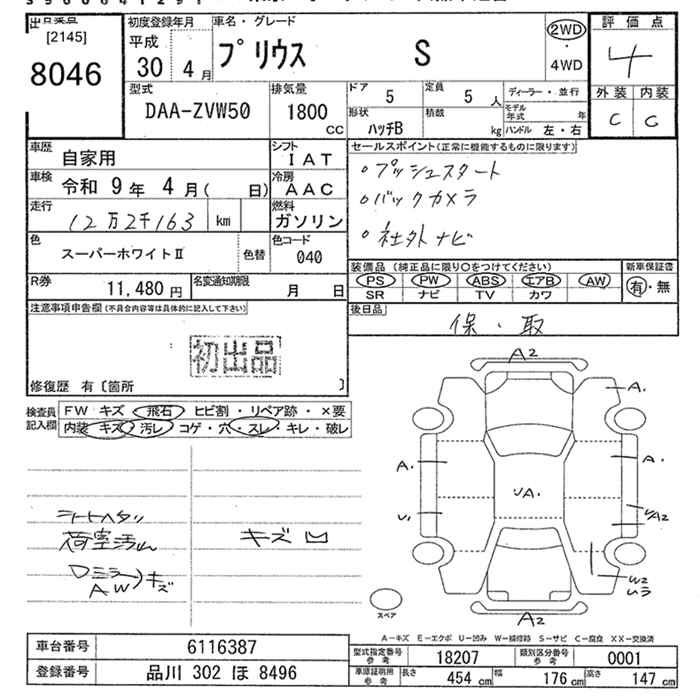 [2145]
8046
初度登録年月
平成
30 4 月
車名・グレード
プリウス S
2WD
・
4WD
評価点
4
外装 内装
C C
型式
DAA-ZVW50
排気量
1800
CC
ドア 5
定員 5 人
形状 ハッチB
積載 kg
ディーラー・並行
モデル年式 年
ハンドル 左・右
車歴 自家用
シフト IAT
車検 令和 9 年 4 月( 日)
冷房 AAC
走行 12万2千163 km
燃料 ガソリン
色 スーパーホワイトⅡ 色替
色コード 040
R券 11,480 円
名変通知期限 月 日
セールスポイント(正常に機能するものに限ります)
○プッシュスタート
○バックカメラ
○社外ナビ
装備品 (純正品に限り○をつけてください)
PS PW ABS エアB AW
SR ナビ TV カワ
新車保証書
有・無
後日品
保・取
注意事項申告欄(不具合内容等は具体的に記入して下さい)
初出品
修復歴 有〔箇所 〕
検査員記入欄
FW キズ 飛石 ヒビ割・リペア跡・×要
内装 キズ 汚レ コゲ・穴・スレ・キレ・破レ
シートヘタリ
荷室汚レ
Dミラー キズ
AW
キズ 凹
A2
A.
A.
A.
UA.
U.
UA2
W2
A2
スペア
A−キズ E−エクボ U−凹み W−補修跡 S−サビ C−腐食 XX−交換済
車台番号 6116387
登録番号 品川 302 ほ 8496
型式指定番号 参考 18207
類別区分番号 参考 0001
車庫証明用 参考 長さ 454 cm 幅 176 cm 高さ 147 cm